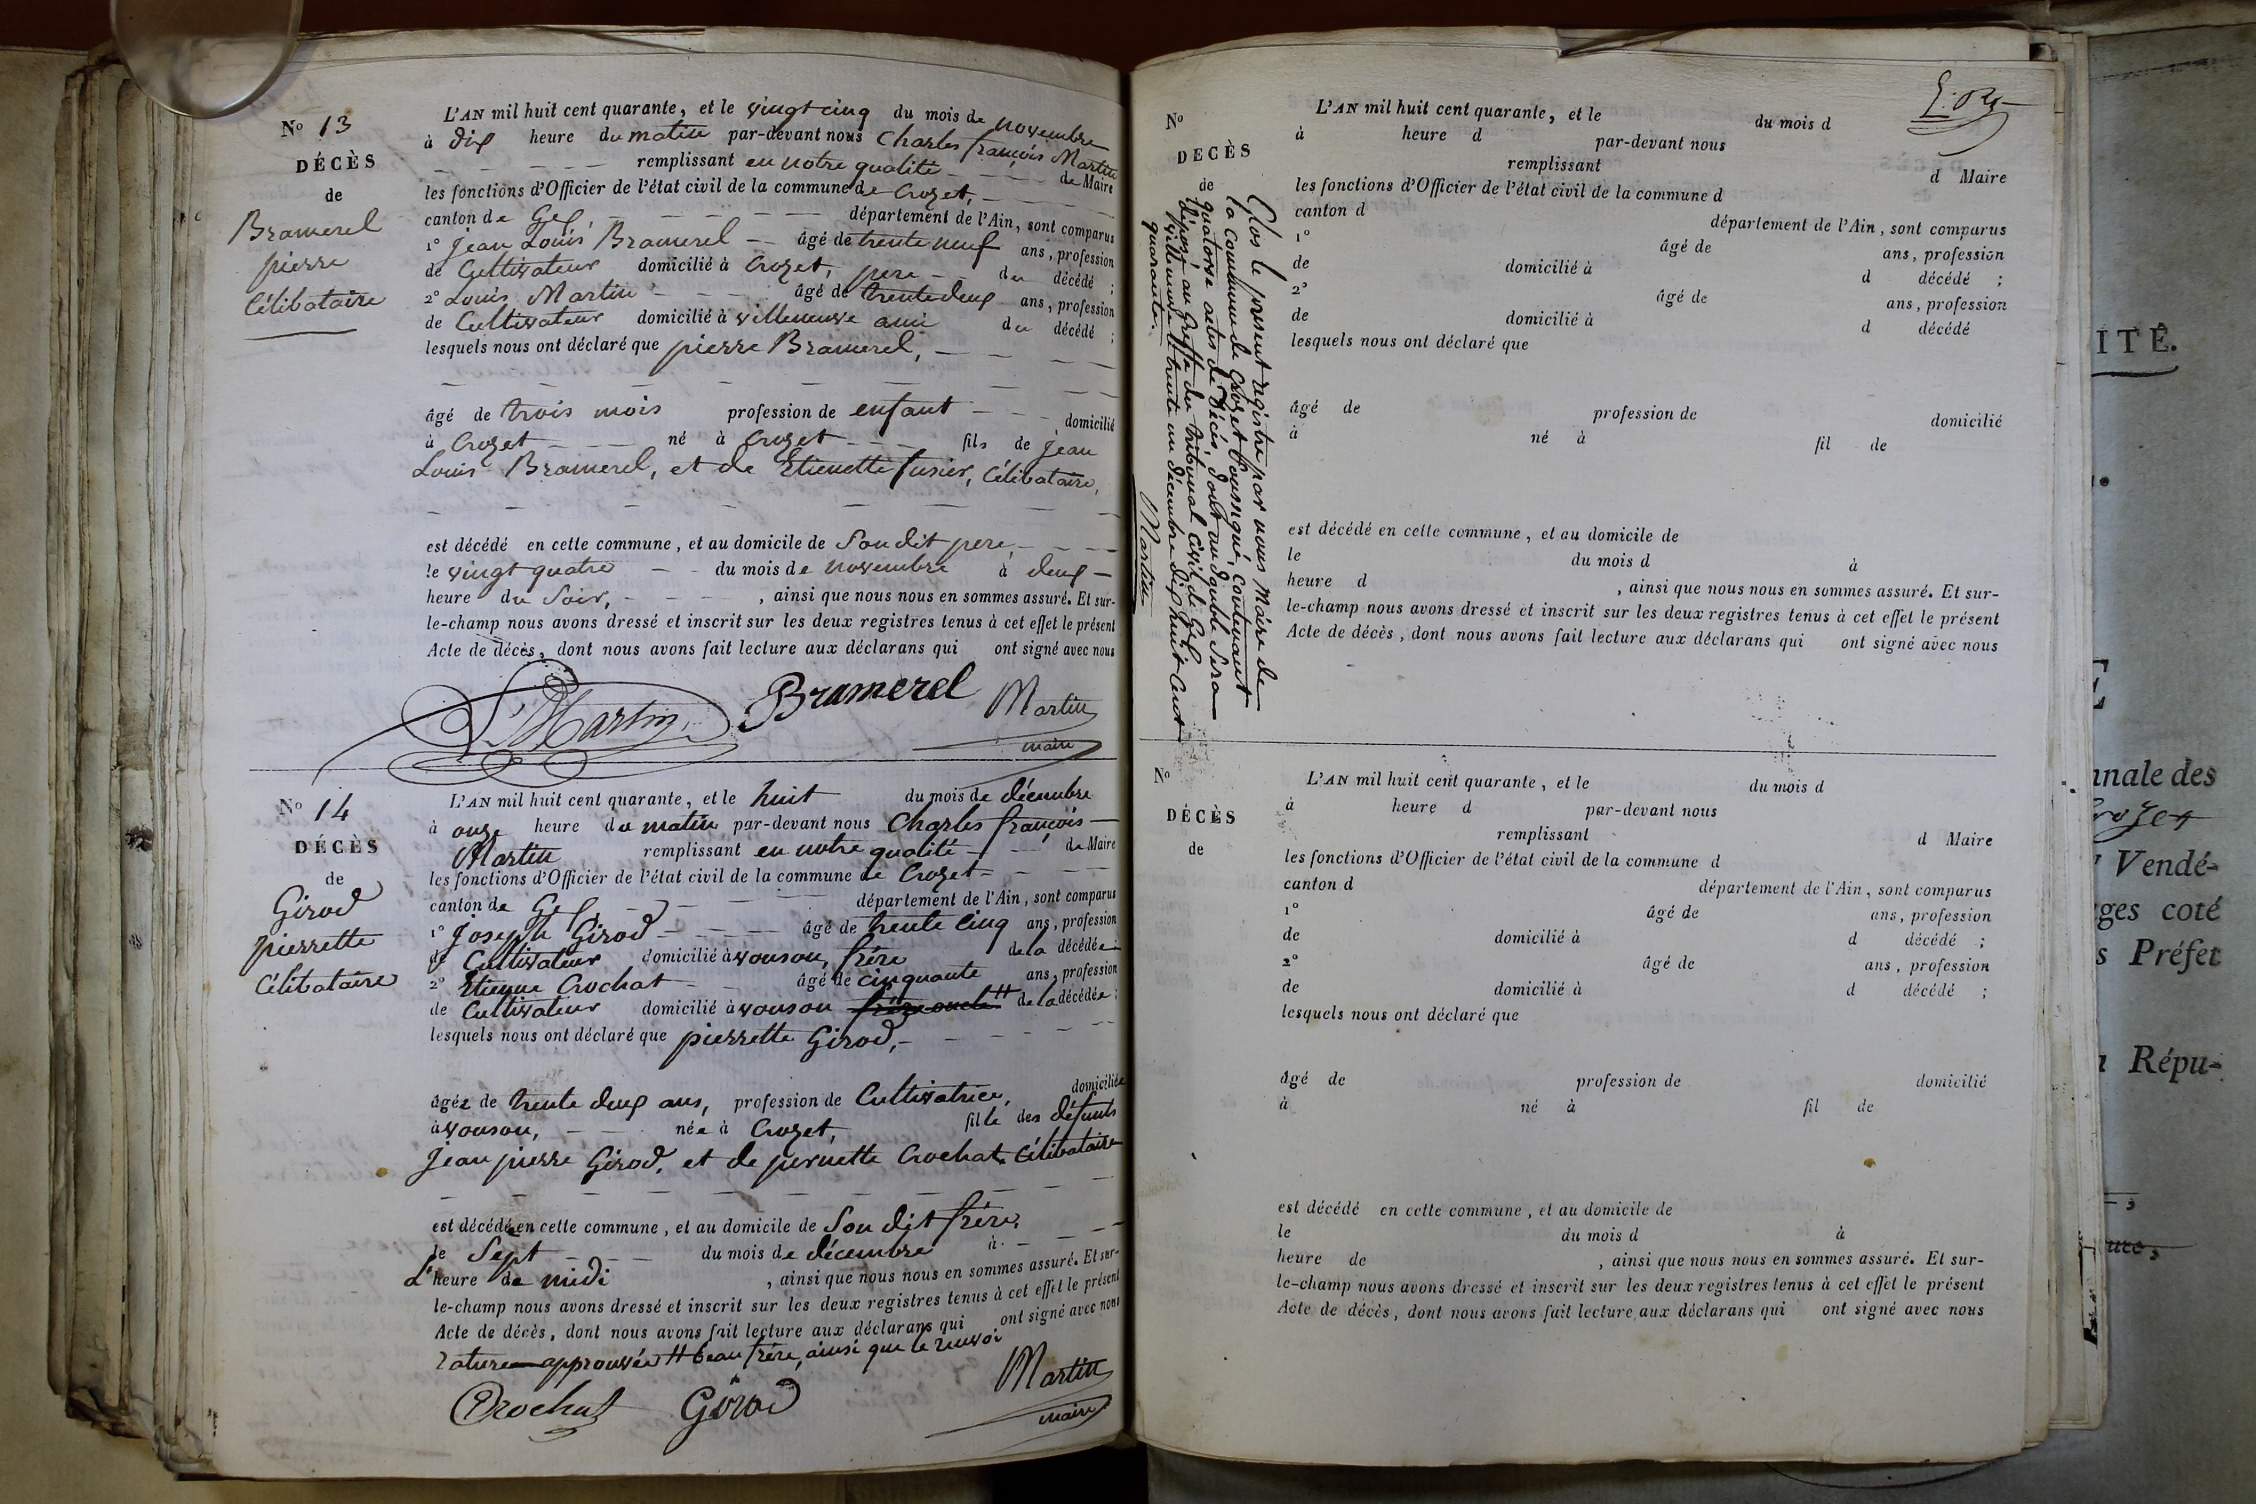 N° 13
DÉCÈS
de
Bramerel
pierre
Célibataire
L'AN mil huit cent quarante, et le vingt cinq du mois de novembre
à dix heure du matin par-devant nous Charles françois Martin
remplissant en notre qualité de Maire
les fonctions d'Officier de l'état civil de la commune de Crozet,
canton de Gex, département de l'Ain, sont comparus
1° Jean Louis Bramerel âgé de trente neuf ans, profession
de Cultivateur domicilié à Crozet, pere du décédé ;
2° Louis Martin âgé de trente deux ans, profession
de Cultivateur domicilié à villeneuve ami du décédé ;
lesquels nous ont déclaré que pierre Bramerel,
âgé de trois mois profession de enfant domicilié
à Crozet né à Crozet fils de Jean
Louis Bramerel, et de Etienette fusier, Célibataire,
est décédé en cette commune, et au domicile de Son dit pere,
le vingt quatre du mois de novembre à deux
heure du Soir, , ainsi que nous nous en sommes assuré. Et sur-
le-champ nous avons dressé et inscrit sur les deux registres tenus à cet effet le présent
Acte de décès, dont nous avons fait lecture aux déclarans qui ont signé avec nous
L. Martin Bramerel Martin
maire
N° 14
DÉCÈS
de
Girod
pierrette
Célibataire
L'AN mil huit cent quarante, et le huit du mois de décembre
à onze heure du matin par-devant nous Charles françois
Martin remplissant en notre qualité de Maire
les fonctions d'Officier de l'état civil de la commune de Crozet
canton de Gex département de l'Ain, sont comparus
1° Joseph Girod âgé de trente cinq ans, profession
de Cultivateur domicilié à vouson, frére de la décédée
2° Etienne Crochat âgé de cinquante ans, profession
de Cultivateur domicilié à vouson frére oncle # de la décédée ;
lesquels nous ont déclaré que pierrette Girod,
âgée de trente deux ans, profession de Cultivatrice, domiciliée
à vouson, née à Crozet, fille des défunts
Jean pierre Girod, et de pernette Crochat, Célibataire
est décédée en cette commune, et au domicile de Son dit frére,
le Sept du mois de décembre à
L'heure de midi , ainsi que nous nous en sommes assuré. Et sur-
le-champ nous avons dressé et inscrit sur les deux registres tenus à cet effet le présent
Acte de décès, dont nous avons fait lecture aux déclarans qui ont signé avec nous
rature approuvée # beau frére, ainsi que le renvoi
Crochat Girod Martin
maire
N°
DECÈS
de
Clos le présent registre par nous Maire de
la Commune de Crozet Soussigné, contenant
quatorze actes de Décès, dont un double sera
déposé au Greffe du tribunal civil de Gex
villeneuve le trente un décembre dix huit Cent
quarante.
Martin
L'AN mil huit cent quarante, et le du mois d
à heure d par-devant nous
remplissant d Maire
les fonctions d'Officier de l'état civil de la commune d
canton d département de l'Ain, sont comparus
1° âgé de ans, profession
de domicilié à d décédé ;
2° âgé de ans, profession
de domicilié à d décédé
lesquels nous ont déclaré que
âgé de profession de domicilié
à né à fil de
est décédé en cette commune, et au domicile de
le du mois d à
heure d , ainsi que nous nous en sommes assuré. Et sur-
le-champ nous avons dressé et inscrit sur les deux registres tenus à cet effet le présent
Acte de décès, dont nous avons fait lecture aux déclarans qui ont signé avec nous
N°
DÉCÈS
de
L'AN mil huit cent quarante, et le du mois d
à heure d par-devant nous
remplissant d Maire
les fonctions d'Officier de l'état civil de la commune d
canton d département de l'Ain, sont comparus
1° âgé de ans, profession
de domicilié à d décédé ;
2° âgé de ans, profession
de domicilié à d décédé ;
lesquels nous ont déclaré que
âgé de profession de domicilié
à né à fil de
est décédé en cette commune, et au domicile de
le du mois d à
heure de , ainsi que nous nous en sommes assuré. Et sur-
le-champ nous avons dressé et inscrit sur les deux registres tenus à cet effet le présent
Acte de décès, dont nous avons fait lecture aux déclarans qui ont signé avec nous
ITÉ.
E
nnale des
Crozet
Vendé-
ges coté
s Préfet
Répu-